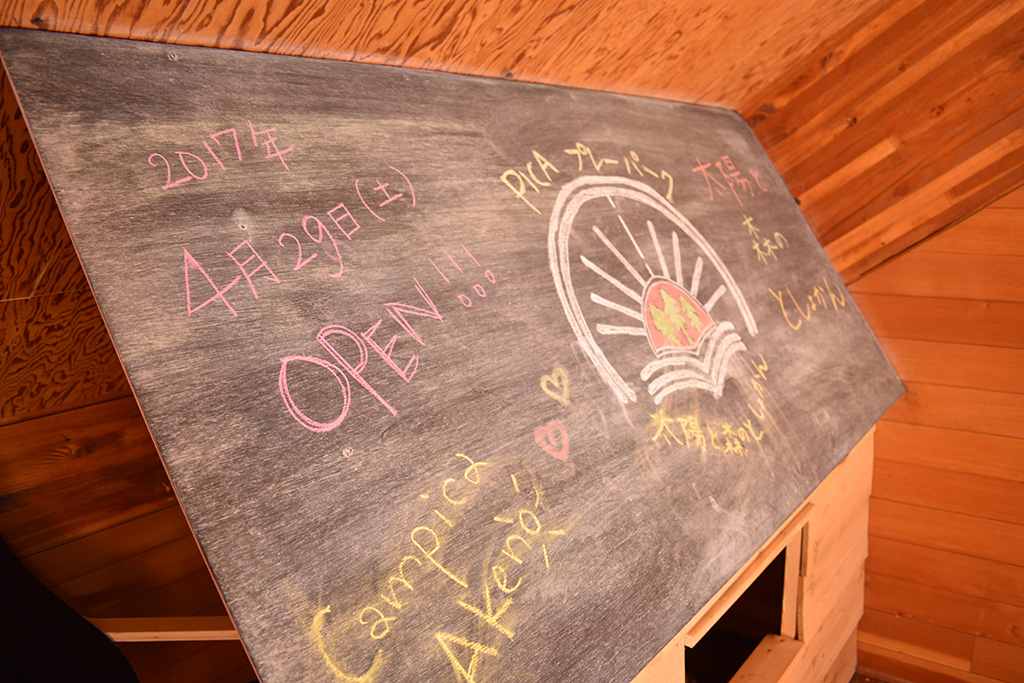 2017年
4月29日(土)
OPEN!!!
PICA プレーパーク
太陽と
森の
としょかん
太陽と森のとしょかん
Campica
Akeno!